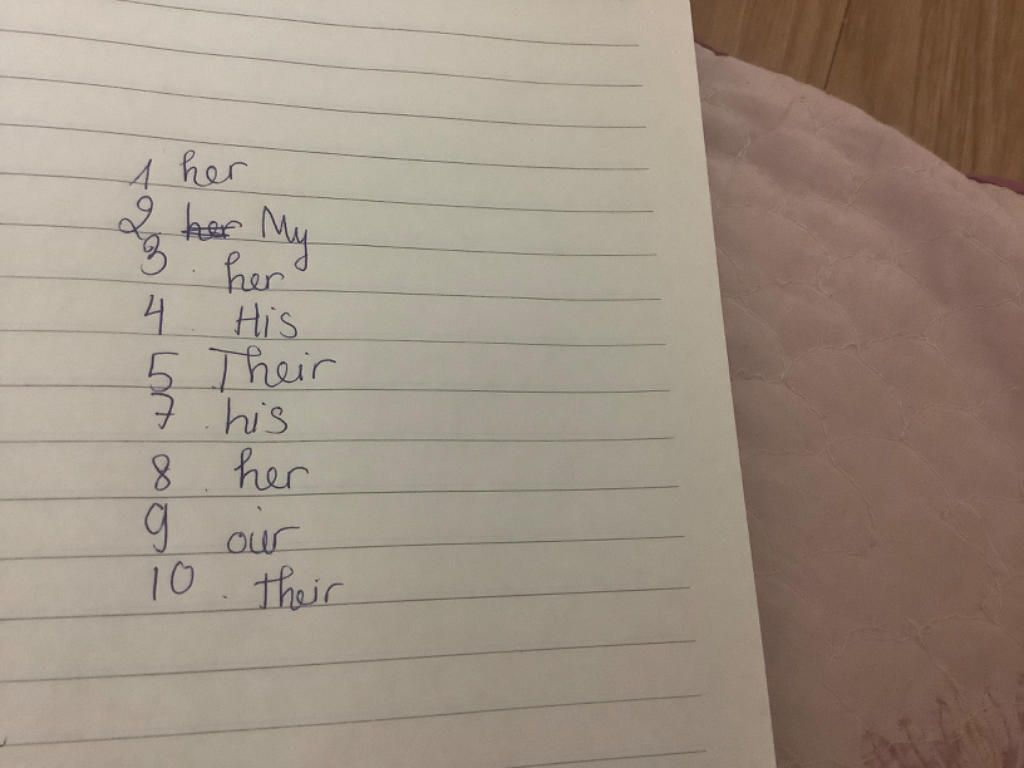 1 her
2 her My
3. her
4. His
5 Their
7. his
8. her
9 our
10. their